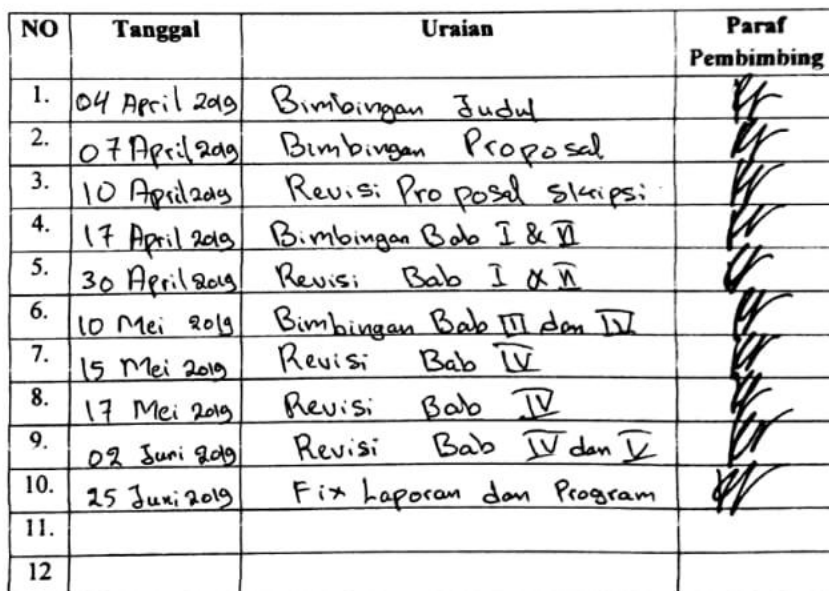 NO Tanggal Uraian Paraf Pembimbing
1. 04 April 2019 Bimbingan Judul
2. 07 April 2019 Bimbingan Proposal
3. 10 April 2019 Revisi Proposal Skripsi
4. 17 April 2019 Bimbingan Bab I & II
5. 30 April 2019 Revisi Bab I & II
6. 10 Mei 2019 Bimbingan Bab III dan IV
7. 15 Mei 2019 Revisi Bab IV
8. 17 Mei 2019 Revisi Bab IV
9. 02 Juni 2019 Revisi Bab IV dan V
10. 25 Juni 2019 Fix Laporan dan Program
11.
12